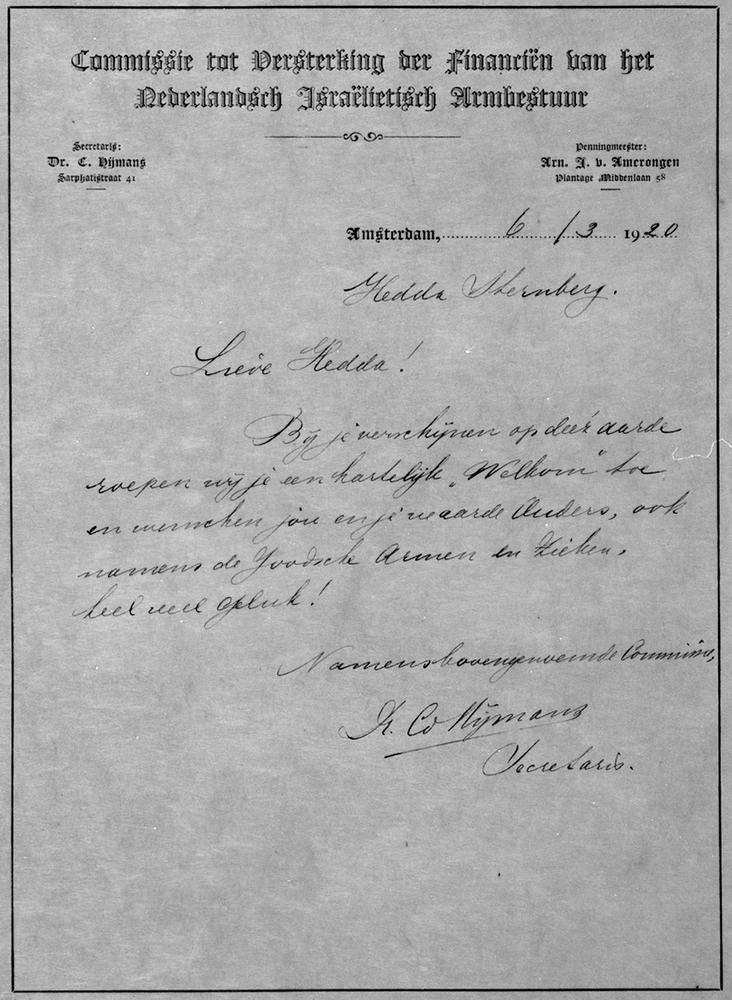 Commissie tot Versterking der Financiën van het
Nederlandsch Israëlietisch Armbestuur
Secretaris:
Dr. C. Hijmans
Sarphatistraat 41
Penningmeester:
Arn. J. v. Amerongen
Plantage Middenlaan 58
Amsterdam, 6/3 1920
Hedda Sternberg.
Lieve Hedda!
Bij je verschijnen op deez' aarde
roepen wij je een hartelijk „Welkom" toe
en wenschen jou en je waarde Ouders, ook
namens de Joodsche Armen en Zieken,
heel veel geluk!
Namens bovengenoemde Commissie,
Dr. Co Hijmans
Secretaris.